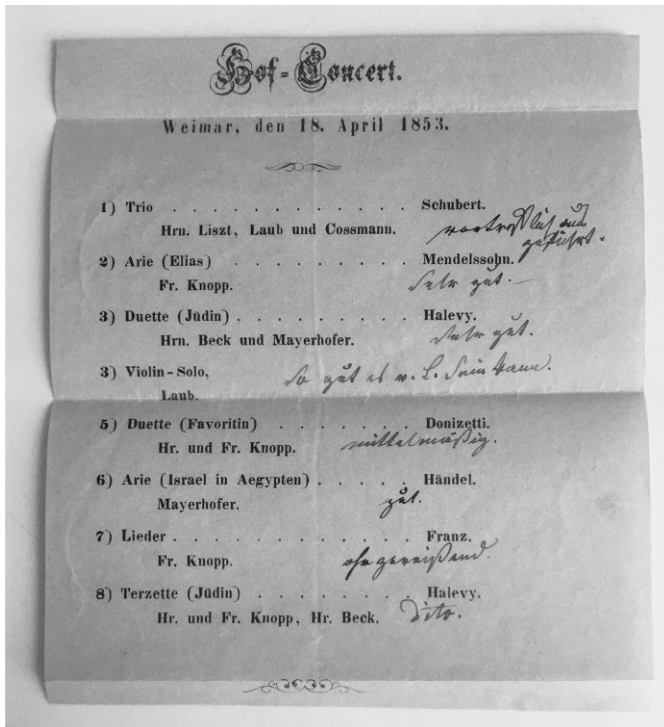 Hof-Concert.
Weimar, den 18. April 1853.
1) Trio . . . . . . . . . . . . Schubert.
Hrn. Liszt, Laub und Cossmann. vortrefflich aus
geführt.
2) Arie (Elias) . . . . . . . . . Mendelssohn.
Fr. Knopp. Sehr gut.
3) Duette (Jüdin) . . . . . . . . . Halevy.
Hrn. Beck und Mayerhofer. Sehr gut.
3) Violin-Solo, So gut es v. L. sein kann.
Laub.
5) Duette (Favoritin) . . . . . . . Donizetti.
Hr. und Fr. Knopp. mittelmäßig.
6) Arie (Israel in Aegypten) . . . . . Händel.
Mayerhofer. gut.
7) Lieder . . . . . . . . . . . . Franz.
Fr. Knopp. ohrzerreißend.
8) Terzette (Jüdin) . . . . . . . . Halevy.
Hr. und Fr. Knopp, Hr. Beck. Dito.